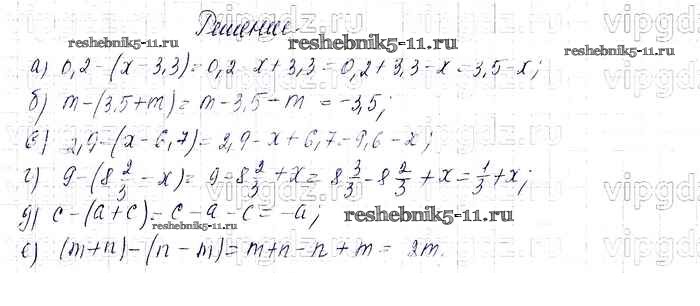 Решение.
reshebnik5-11.ru
reshebnik5-11.ru
reshebnik5-11.ru
а) 0,2-(x-3,3)=0,2-x+3,3=0,2+3,3-x=3,5-x;
б) m-(3,5+m)=m-3,5-m=-3,5;
в) 2,9-(x-6,7)=2,9-x+6,7=9,6-x;
г) 9-(8 2/3 -x)=9-8 2/3 +x=8 3/3 -8 2/3 +x=1/3+x;
д) c-(a+c)=c-a-c=-a;
reshebnik5-11.ru
reshebnik5-11.ru
е) (m+n)-(n-m)=m+n-n+m=2m.